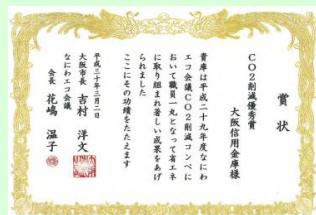 賞状
CO2削減優秀賞
大阪信用金庫様
貴庫は平成二十九年度なにわ
エコ会議CO2削減コンペに
おいて職員一丸となって省エネ
に取り組まれ著しい成果をあげ
られました
ここにその功績をたたえます
平成三十年三月二日
大阪市長 吉村 洋文
なにわエコ会議
会長 花嶋 温子